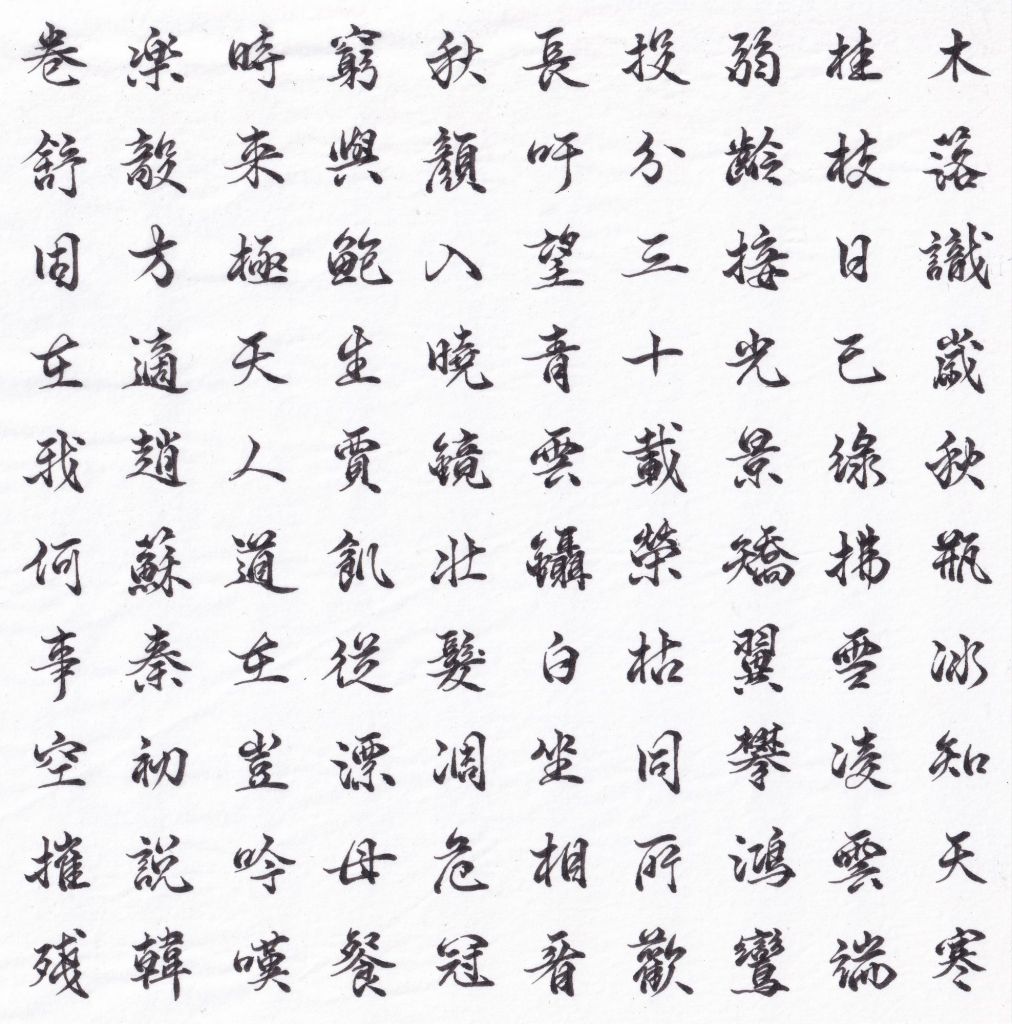 木落識歲秋瓶冰知天寒
桂枝日已綠拂雪凌雲端
弱齡接光景矯翼攀鴻鸞
投分三十載榮枯同所歡
長吁望青雲鑷白坐相看
秋顏入曉鏡壯髮凋危冠
窮與鮑生賈飢從漂母餐
時來極天人道在豈吟嘆
樂毅方適趙蘇秦初說韓
卷舒固在我何事空摧殘